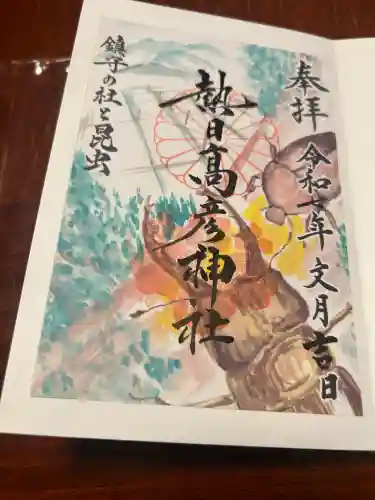 奉拝 令和七年 文月吉日
熱日高彦神社
鎮守の社と昆虫